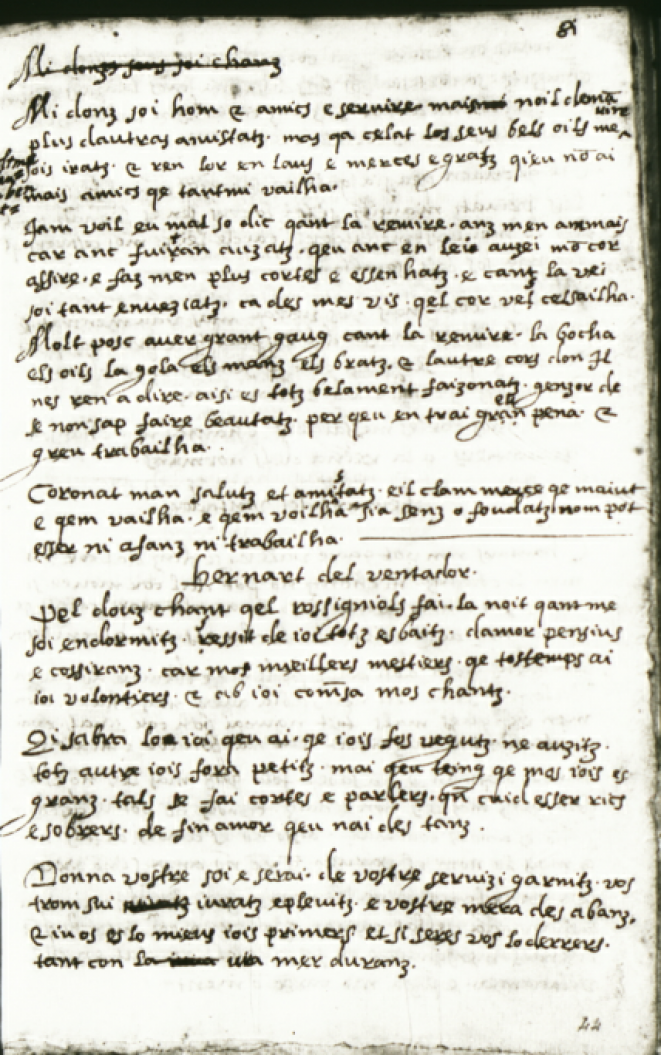 Mi donz sous joi chanz
Mi donz soi hom & amics e servire mais noil demā
plus dautras amistatz. mas qa celat los seus bels oils me
sois iratz. & ren lor en laus e merces e gratz qieu nō ai
mais amics qe tant mi vailha.
Jam voil eu mal so dic qant la remire. anz men ammais
car anc fui tan auzatz. qeu anc en leis auzei mō cor
assire. e faz men plus cortes e essenhatz. e cant la vei
soi tant enveziatz. ca des mes vis. qel cor ves cel sailha.
Molt posc aver grant gaug cant la remire. la bocha
els oils la gola els manz els bratz. & lautre cors don Jl
nes ren a dire. aisi es totz belament faizonatz. genzor de
se non sap faire beautatz. per qeu en trai gran pena. &
greu trabailha.
Coronat man salutz et amistatz. eil clam merce qe maiut
e qem vailha. e qem voilha sia senz o foudatz nom pot
esser ni afanz ni trabailha.
bernart del ventador.
Pel douz chant qel rossignols fai. la noit qant me
soi endormitz. ressit de ioi totz esbaitz. damor pensius
e cossiranz. car mos meillers mestiers. qe tostemps ai
ioi volontiers. & ab ioi comēsa mos chantz.
Qi sabra lo ioi qeu ai. qe iois fos vegutz ne auzitz.
totz autre iois fora petitz. mai qeu teing qe mos iois es
granz. tals se fai cortes e parlers. qē cuid esser rics
e sobrers. de fin amor qeu nai des tanz.
Donna vostre soi e serai. de vostre servizi garnitz. vos
trom sui iuratz eplevitz. e vostre mera des abanz.
& iu os es lo meus iois primers et si seres vos lo derrers.
tant con la vita mer duranz.
44